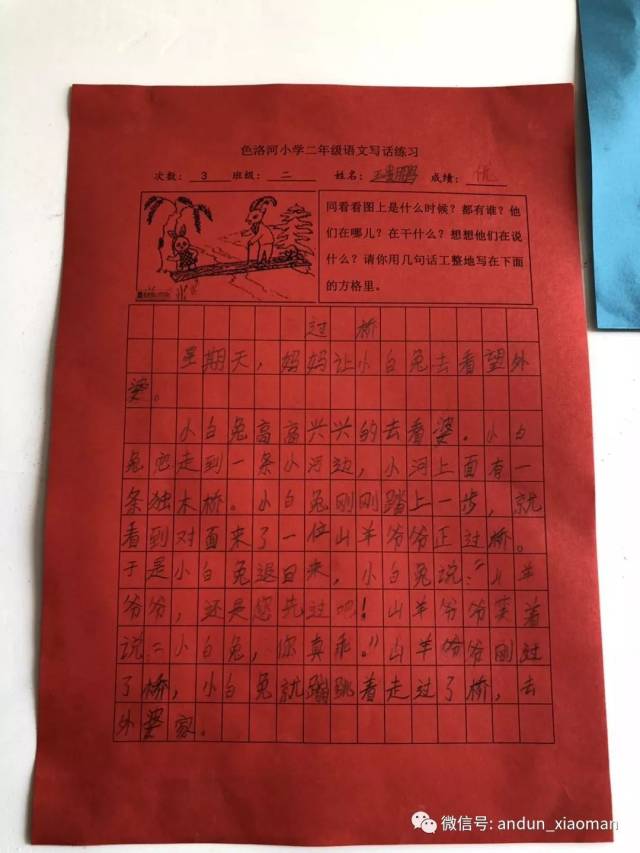 色洛河小学二年级语文写话练习
次数：3 班级：二 姓名： 成绩：优
同看看图上是什么时候？都有谁？他
们在哪儿？在干什么？想想他们在说
什么？请你用几句话工整地写在下面
的方格里。
过桥
星期天，妈妈让小白兔去看望外
婆。
小白兔高高兴兴的去看婆。小白
兔它走到一条小河边，小河上面有一
条独木桥。小白兔刚刚踏上一步，就
看到对面来了一位山羊爷爷正过桥。
于是小白兔退回来，小白兔说：“山羊
爷爷，还是您先过吧！山羊爷爷笑着
说：“小白兔，你真乖。”山羊爷爷刚过
了桥，小白兔就蹦跳着走过了桥，去
外婆家。
微信号: andun_xiaoman